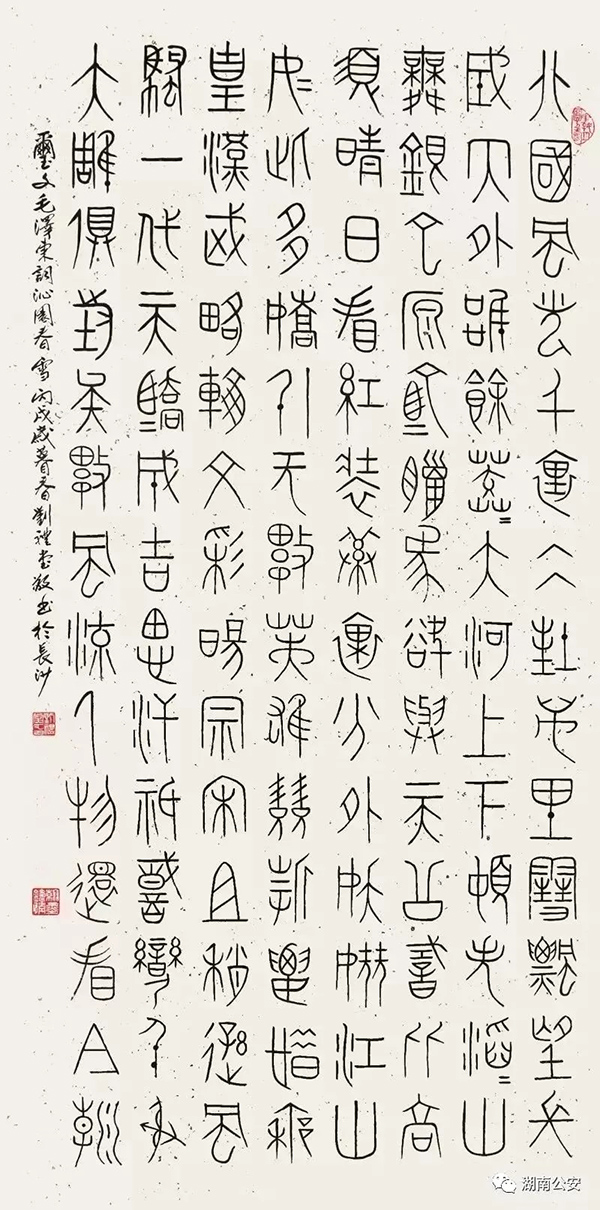 北國風光千里冰封萬里雪飄望長
城內外唯餘莽=大河上下頓失滔=山
舞銀蛇原馳蠟象欲與天公試比高
須晴日看紅裝素裹分外妖嬈江山
如此多嬌引无數英雄競折腰惜秦
皇漢武略輸文彩唐宗宋祖稍遜風
騷一代天驕成吉思汗祇識彎弓射
大雕俱往矣數風流人物還看今朝
璽文毛澤東詞沁園春雪丙戌歲暮春劉禮堂敬書於長沙
湖南公安